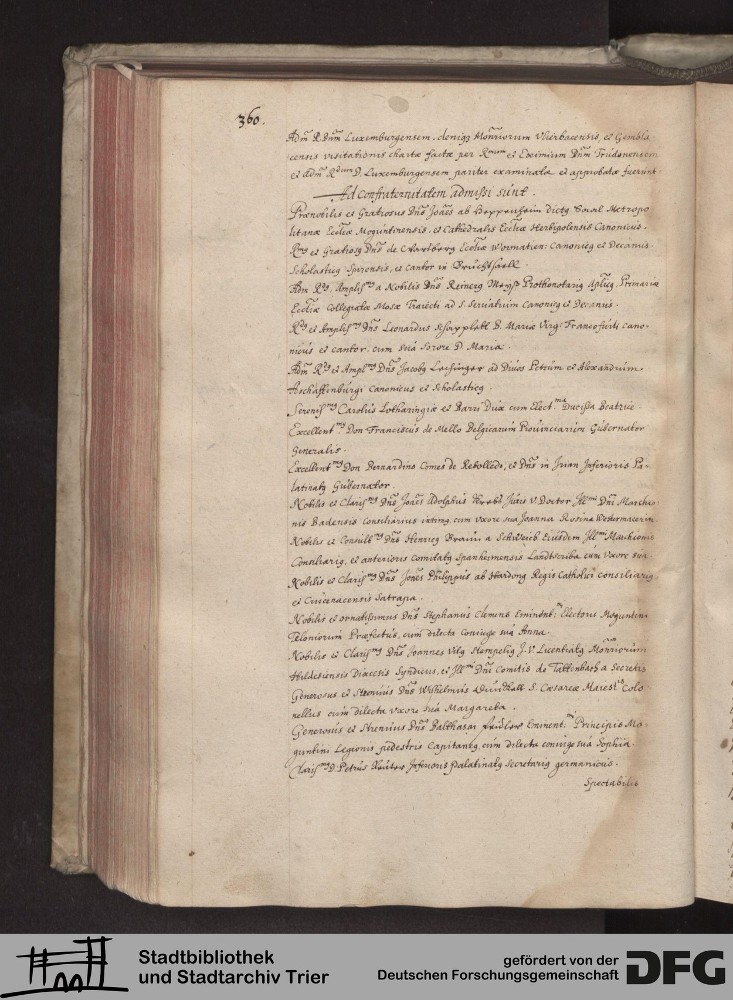 360.
Adm R. Dnm Luxemburgensem. deniq Monriorum Vlierbacensis, et Gembla
censis visitationis chartæ factæ per Rmum et Eximium Dnm Trudonensem
et Adm Rdum D. Luxemburgensem pariter examinatæ et approbatæ fuerunt.
Ad Confraternitatem admissi sunt.
Prænobilis et Gratiosus Dns Joães ab Heppenheim dictg Saal Metropo
litanæ Eccliæ Moguntinensis, et Cathedralis Eccliæ Herbipolensis Canonicus.
Rmg et Gratiosg Dns de Wartberg Eccliæ Wormatien: Canonicg et Decanus
Scholasticg Spirensis, et cantor in Bruchsaell.
Adm Rdg, Amplismg a Nobilis Dns Reinerg Meyß Prothonotarig Aplicg, Primariæ
Eccliæ Collegiatæ Mosæ Traiecti ad S. Seruatium Canonicg et Decanus.
Rdg et Amplismg Dns Leonardus Schapplatt B. Mariæ Virg: Francofurti cano-
nicus et cantor, cum suâ Sorore D. Maria.
Adm Rdg et Amplmg Dns Jacobg Lasinger ad Diuos Petrum et Alexandrum
Aschaffenburgi Canonicus et Scholasticg.
Serenismg Carolus Lotharingiæ et Barri Dux cum Elect.ma Ducissa Beatrice
Excellentmg Don Franciscus de Mello Belgicarum Prouinciarum Gubernator
Generalis.
Excellentmg Don Bernardino Comes de Rebolledo, et Dns in Irian Inferioris Pa-
latinatg Gubernator.
Nobilis et Clarismg Dns Joães Adolphus Krebs Juris V. Doctor, Illmi Dni Marchio
nis Badensis consiliarius intimg, cum vxore sua Joanna Rosina Westermacerin.
Nobilis et Consultmg Dns Henricg Braun a Schweich Eiusdem Illmi Marchionis
Consiliarig, et anterioris comitatg Spanheimensis Landtscriba cum vxore sua
Nobilis et Clarismg Dns Joães Philippus ab Hardong Regis Catholici consiliarig
et Crucenacensis Satrapa.
Nobilis et ornatissimus Dns Stephanus Clemens Eminent: Electoris Moguntini
Teloniorum Præfectus, cum dilecta Coniuge suâ Anna.
Nobilis et Clarismg Dns Joannes Vitg Stempelig J. V. Licentiatg Monriorum
Hildesiensis Diæcesis Syndicus, et Illmi Dni Comitis de Tattenbach a Secretis
Generosus et Strenuus Dns Wilhelmus S. Cæsareæ Maiestis Colo
nellus cum dilecta vxore suâ Margareta.
Generosus et Strenuus Dns Balthasar Eminent:mi Principis Mo-
guntini Legionis pedestris Capitaneg, cum dilecta coniuge suâ Sophia.
Clarismg D. Petrus Reuter Inferioris Palatinatg secretarig germanicus.
Spectabilis
Stadtbibliothek
und Stadtarchiv Trier
gefördert von der
Deutschen Forschungsgemeinschaft
DFG